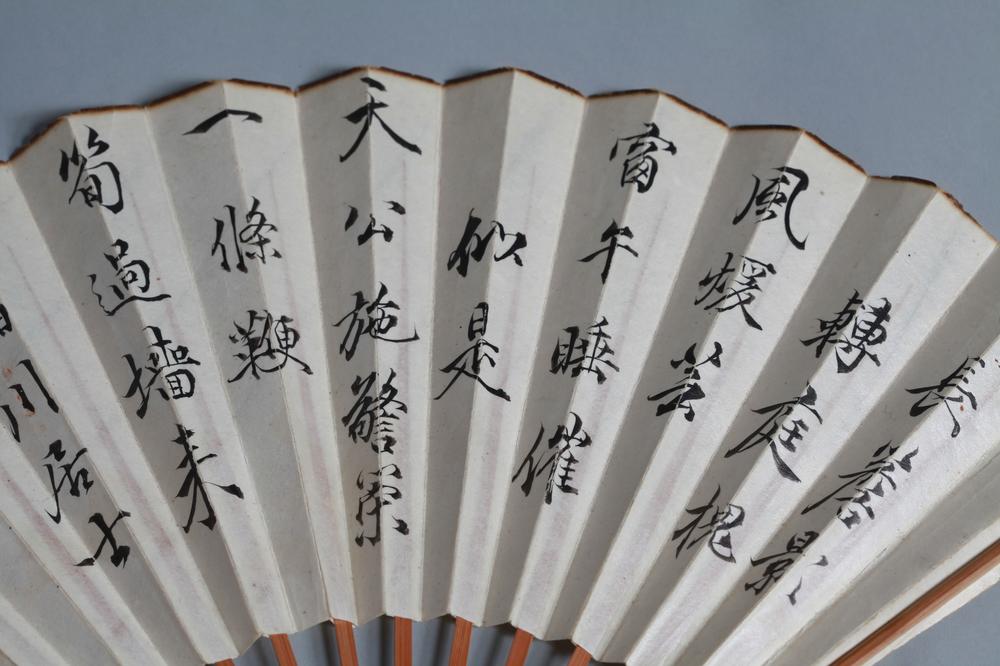 長簷影
轉庭槐
風暖芸
窗午睡催
似是
天公施警策
一條鞭
筍過墻来
川居士